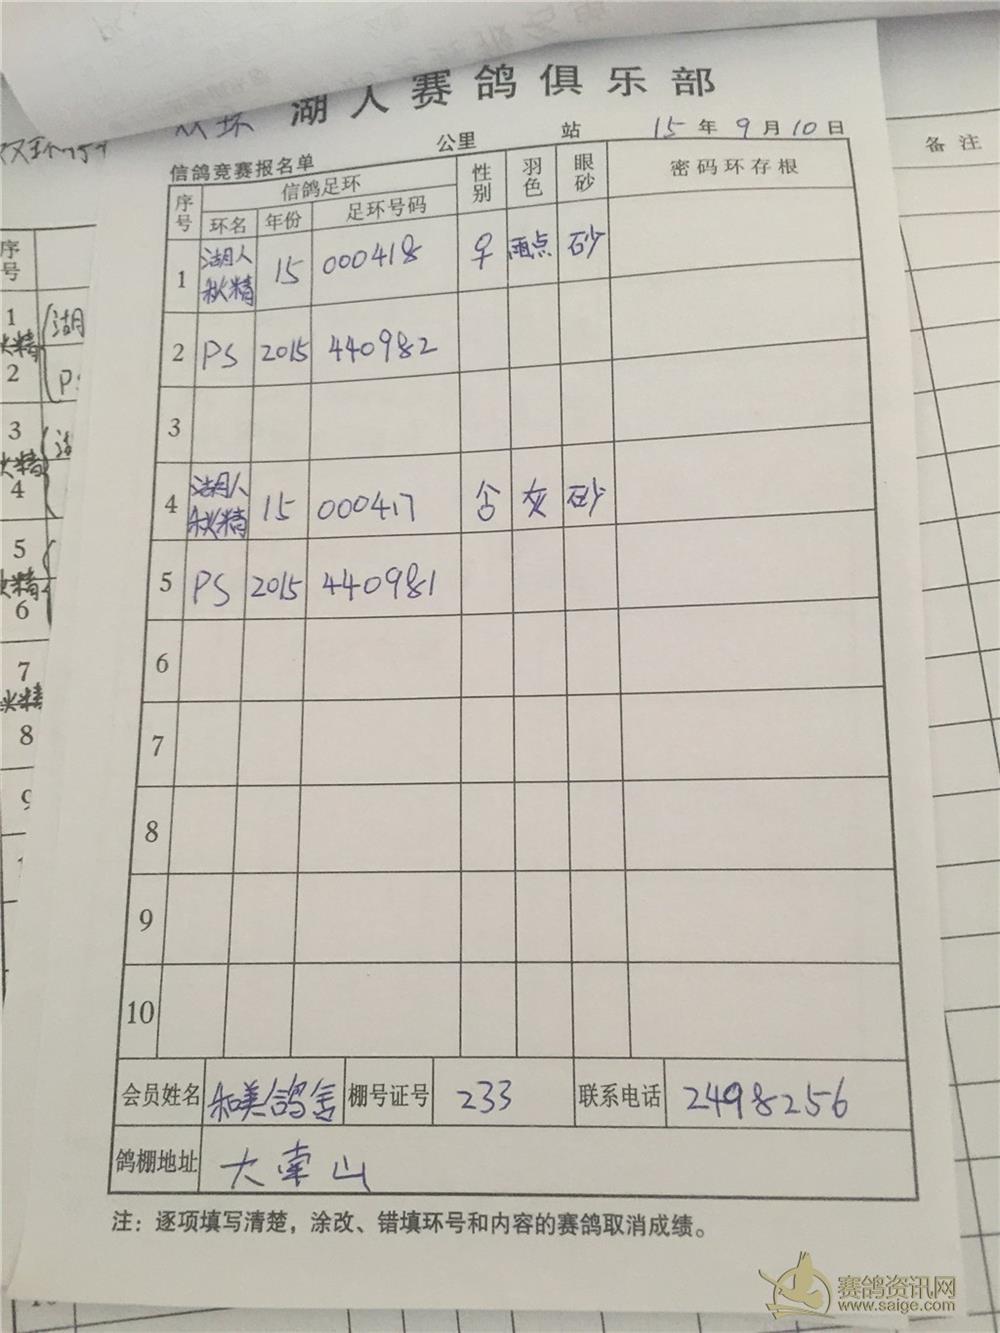 双环 湖人赛鸽俱乐部
公里 站 15年9月10日
信鸽竞赛报名单
序号 信鸽足环 性别 羽色 眼砂 密码环存根
环名 年份 足环号码
1 湖人秋精 15 000418 ♀ 雨点 砂
2 PS 2015 440982
3
4 湖人秋精 15 000417 灰 砂
5 PS 2015 440981
6
7
8
9
10
会员姓名 和美鸽舍 棚号证号 233 联系电话 2498256
鸽棚地址 大南山
注：逐项填写清楚，涂改、错填环号和内容的赛鸽取消成绩。
备注
序号
1 湖
秋精
2 PS
3
秋精
4
5
秋精
6
7
秋精
8
9
赛鸽资讯网
www.saige.com